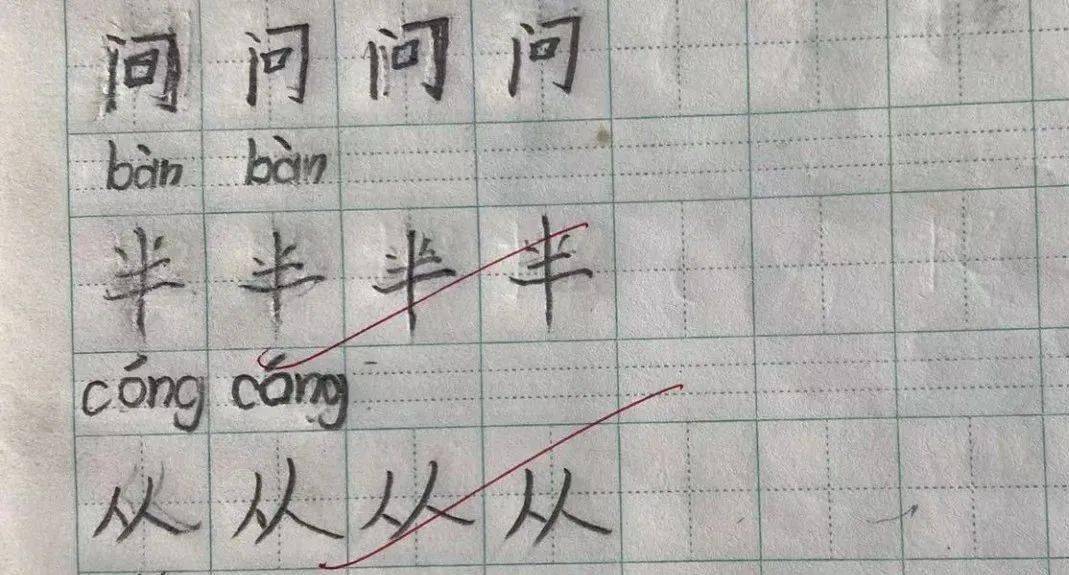 问 问 问 问
bàn bàn
半 半 半 半
cóng cóng
从 从 从 从